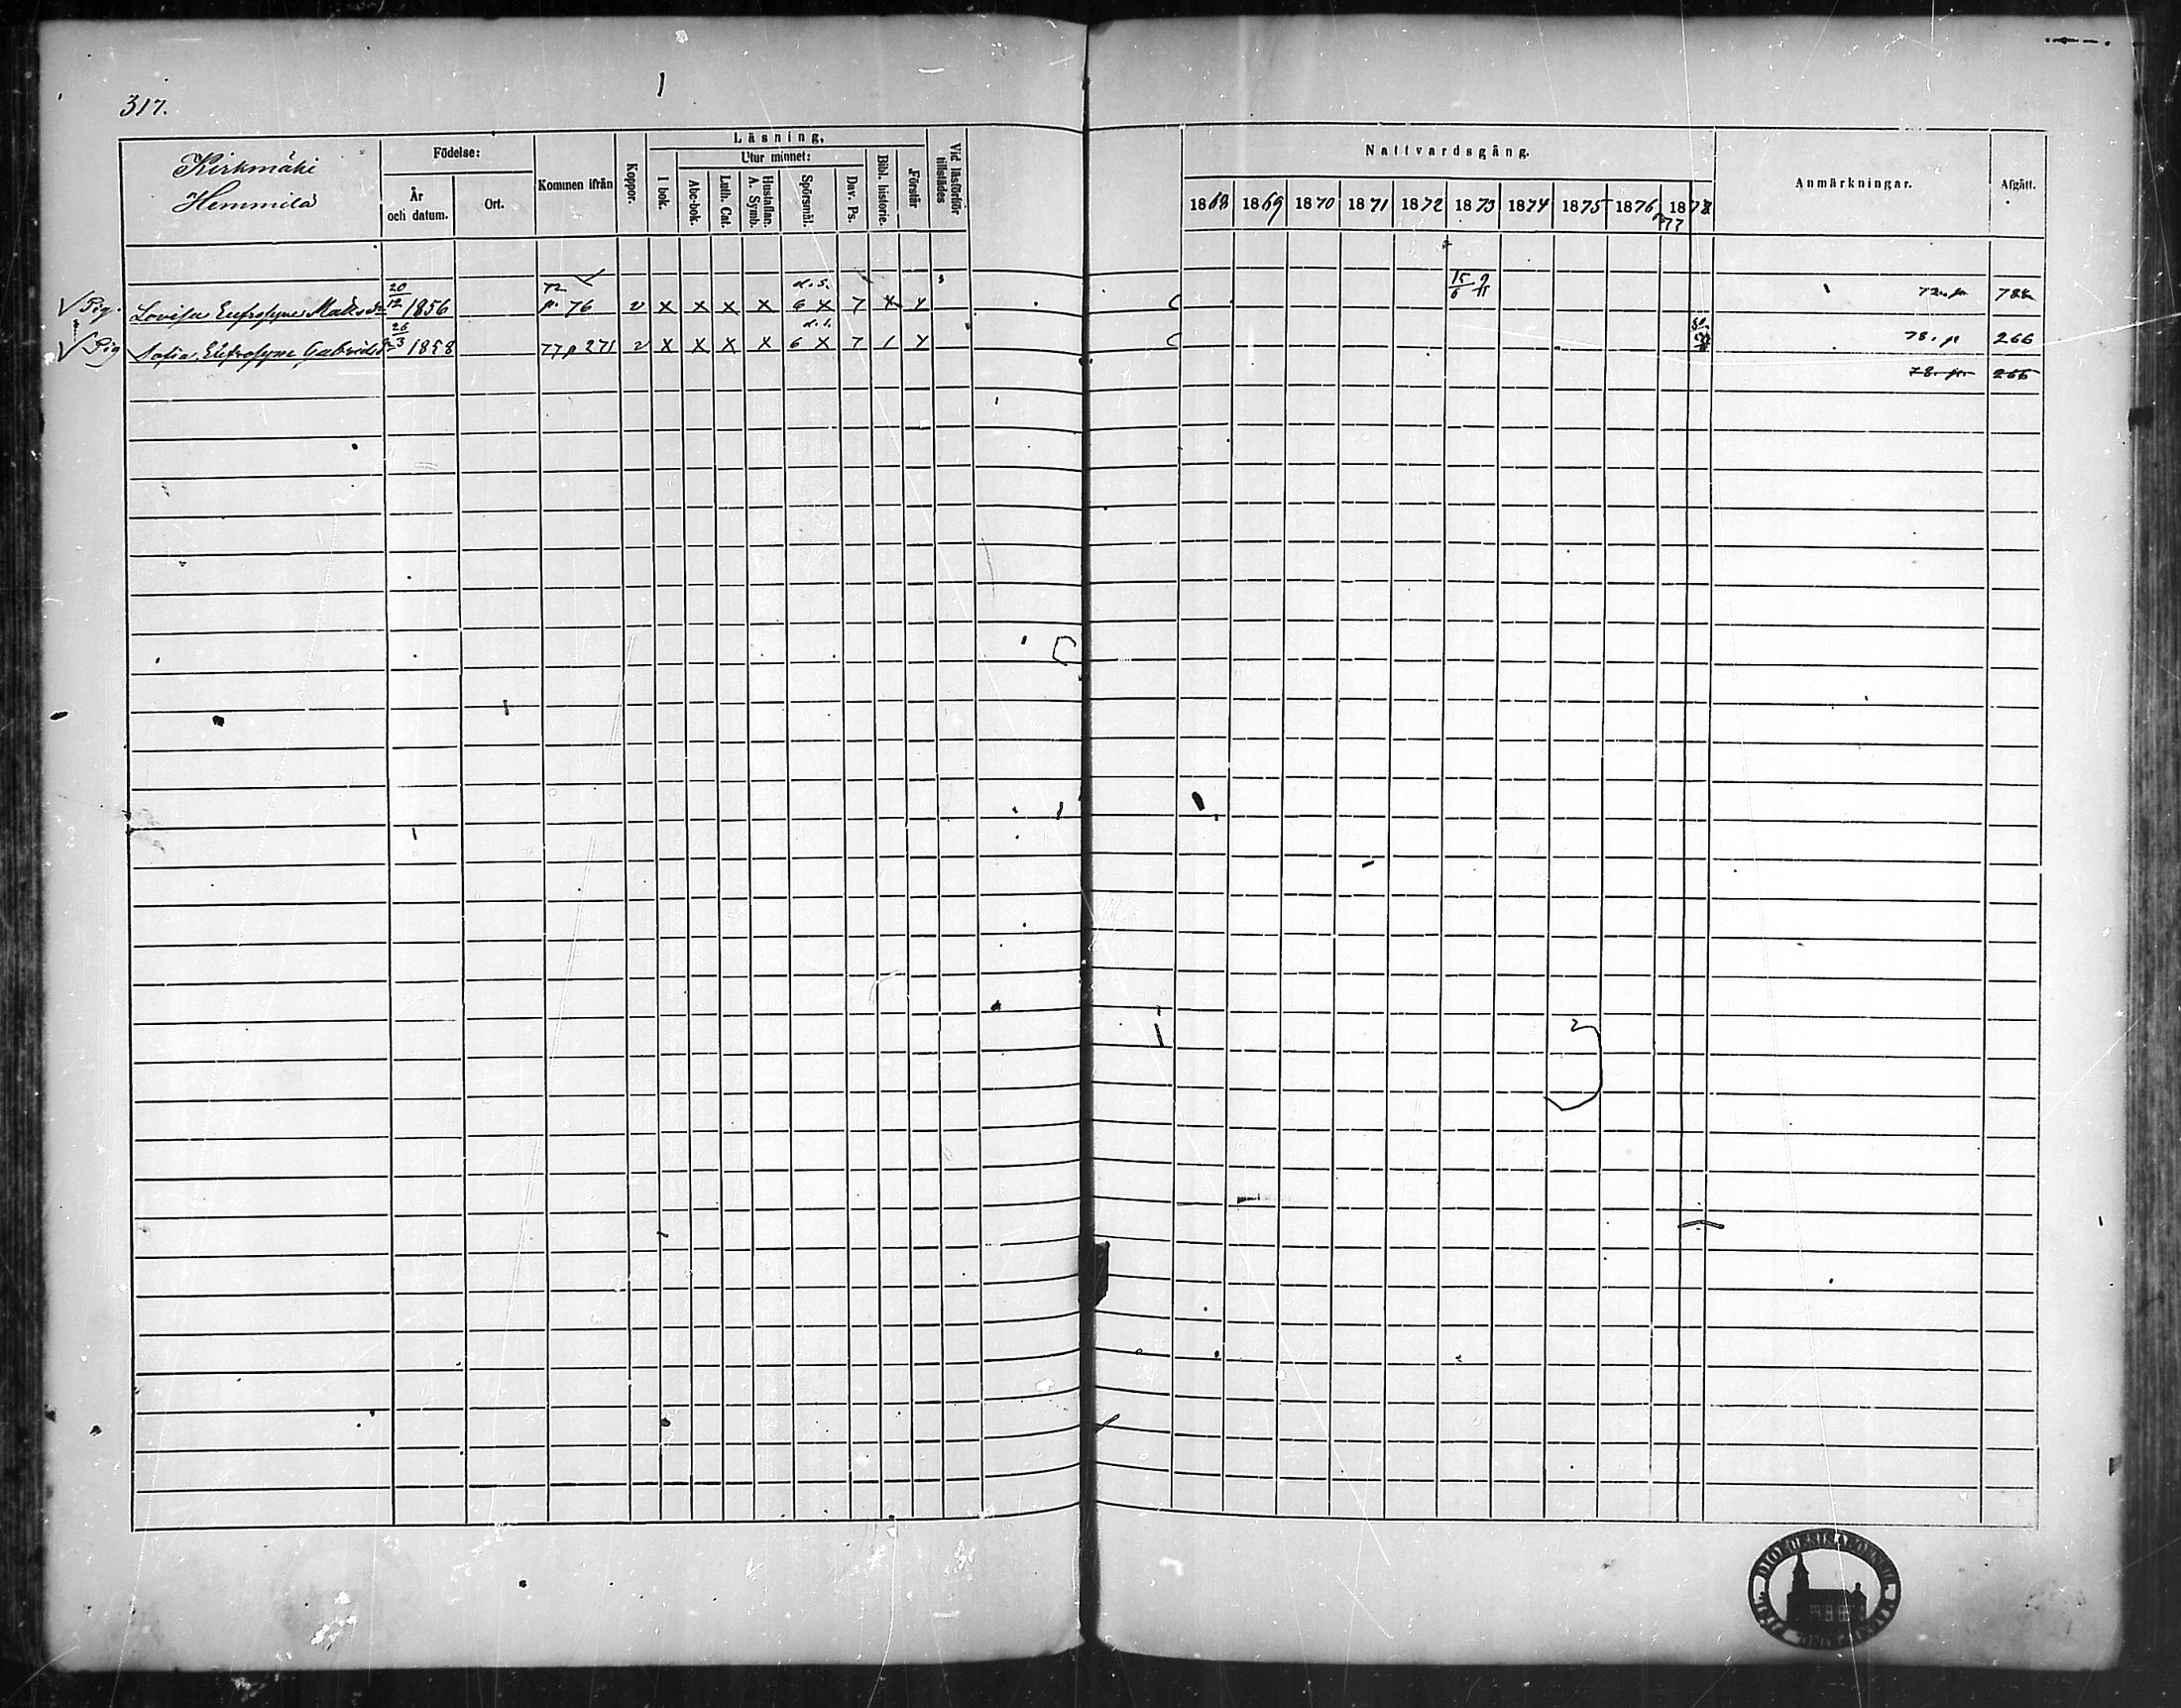 317.
Kirkmäki
Hemmilä
Födelse:
År och datum.
Ort.
Kommen ifrån
Koppor.
Läsning,
I bok.
Utur minnet:
Abc-bok.
Luth. Cat.
Hustaflan. A. Symb.
Spörsmål.
Dav. Ps.
Bibl. historie.
Förstår
Vid läsförhör tillstädes
Nattvardsgång.
1868 1869 1870 1871 1872 1873 1874 1875 1876 1878
77
Anmärkningar.
Afgått.
Pig. Lovisa Eufrosyne Matsd 20/12 1856 72 p. 76 v x x x x 6 x 7 x y 15/6 9/11 72. p
Pig Sofia Eufrosyne Gabrielsd 1858 77 p 271 v x x x x 6 x 7 1 y 78. p 266
78. p. 266